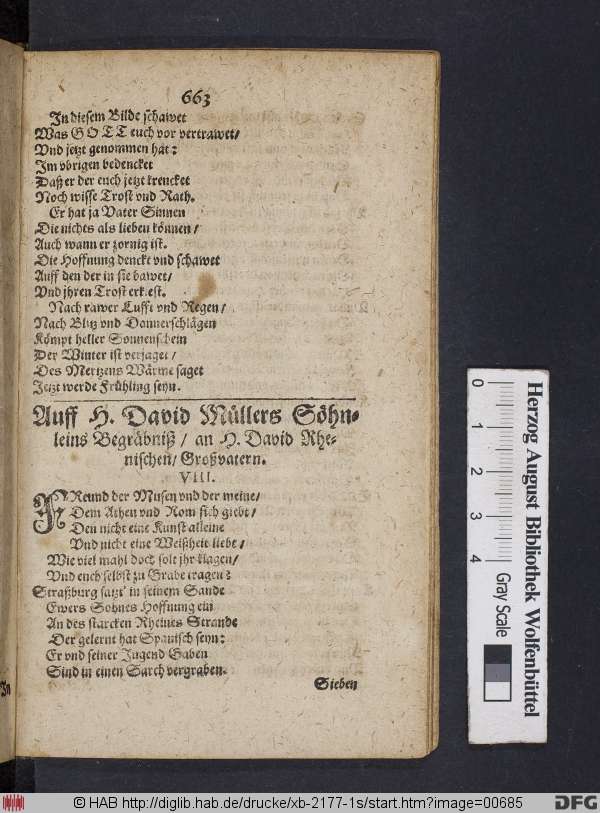 663
In diesem Bilde schawet
Was GOTT euch vor vertrawet/
Vnd jetzt genommen hat:
Im vbrigen bedencket
Daß er der euch jetzt krencket
Noch wisse Trost vnd Rath.
Er hat ja Vater Sinnen
Die nichts als lieben können/
Auch wann er zornig ist.
Die Hoffnung denckt vnd schawet
Auff den der in sie bawet/
Vnd jhren Trost erkiest.
Nach rawer Lufft vnd Regen/
Nach Blitz vnd Donnerschlägen
Kömpt heller Sonnenschein
Der Winter ist verjaget/
Des Mertzens Wärme saget
Jetzt werde Frühling seyn.
Auff H. David Müllers Söhn-
leins Begräbniß/ an H. David Rhe-
nischen/ Großvatern.
VIII.
FReund der Musen vnd der meine/
Dem Athen vnd Rom sich giebt/
Den nicht eine Kunst alleine
Vnd nicht eine Weißheit liebt/
Wie viel mahl doch solt jhr klagen/
Vnd euch selbst zu Grabe tragen?
Straßburg satzt' in seinem Sande
Ewers Sohnes Hoffnung ein
An des starcken Rheines Strande
Der gelernt hat Spanisch seyn:
Er vnd seiner Jugend Gaben
Sind in einen Sarch vergraben.
Sieben
In
0 1 2 3 4
Herzog August Bibliothek Wolfenbüttel
Gray Scale
© HAB http://diglib.hab.de/drucke/xb-2177-1s/start.htm?image=00685
DFG